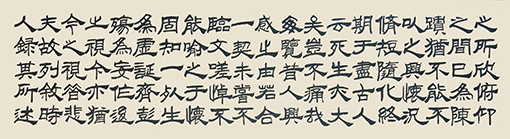 之所欣俯仰
之間已為陳
蹟猶不能不
以之興懷況
脩短隨化終
期于盡古人
云死生亦大
矣豈不痛哉
每覽昔人興
感之由若合
一契未嘗不
臨文嗟悼不
能喻之於懷
固知一死生
為虛誕齊彭
殤為妄作後
之視今亦猶
今之視昔悲
夫故列敘時
人錄其所述